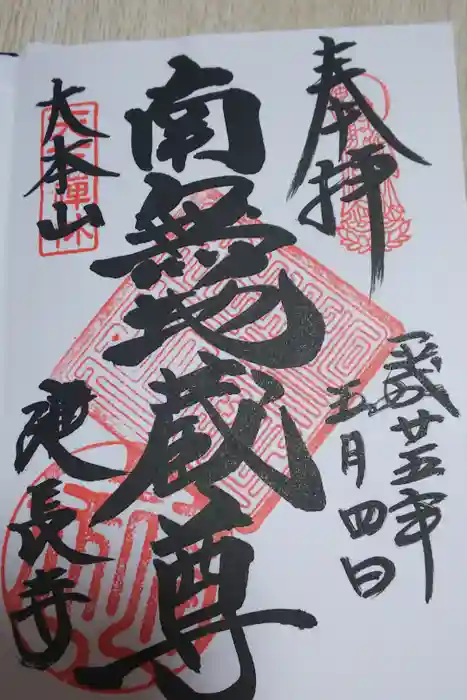 奉拝
平成廿五年
五月四日
南無地蔵尊
大本山
建長寺
天下禪林